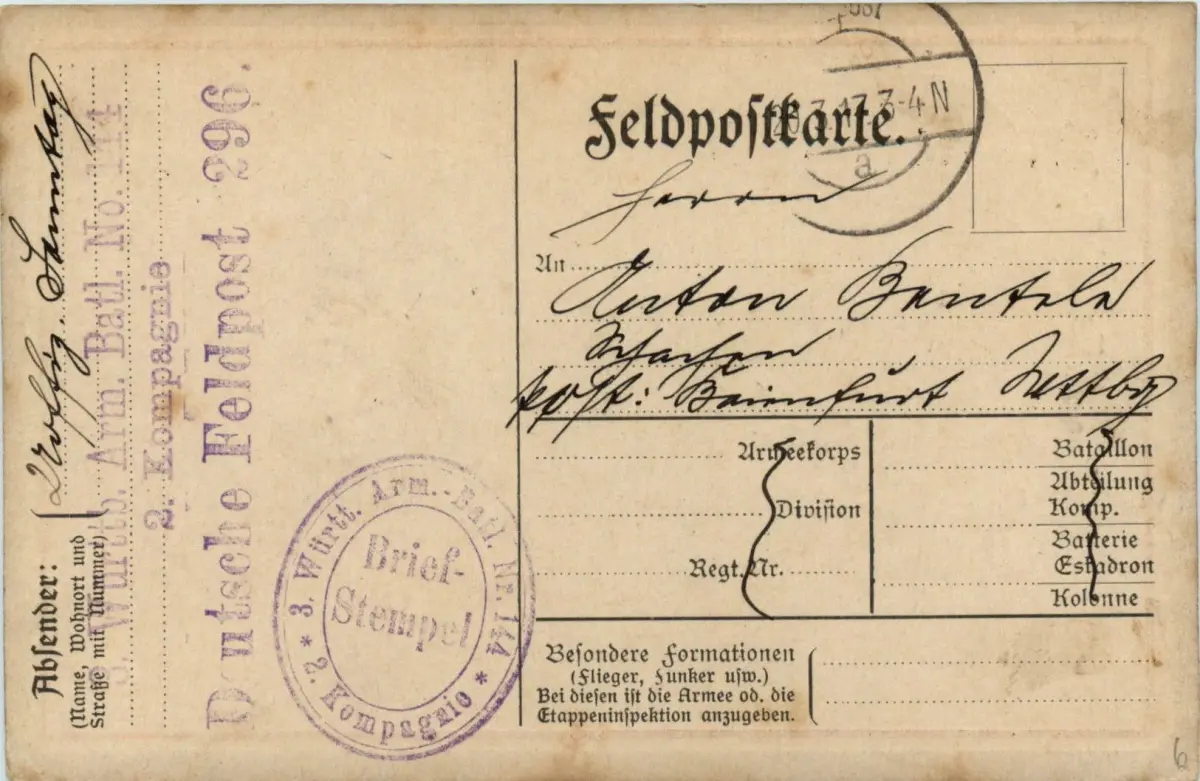 Feldpostkarte.
3-4 N
a
Herrn
An Anton Bentele
Schachen
Post: Baienfurt Wttbg
Armeekorps
Division
Regt. Nr.
Bataillon
Abteilung
Komp.
Batterie
Eskadron
Kolonne
Besondere Formationen
(Flieger, Funker usw.)
Bei diesen ist die Armee od. die
Etappeninspektion anzugeben.
Absender:
(Name, Wohnort und
Straße mit Nummer)
Samstag
3. Württb. Arm. Batl. No. 144
2. Kompagnie
Deutsche Feldpost 296.
* 3. Württ. Arm.-Batl. Nr. 144 *
2. Kompagnie
Brief-
Stempel
6